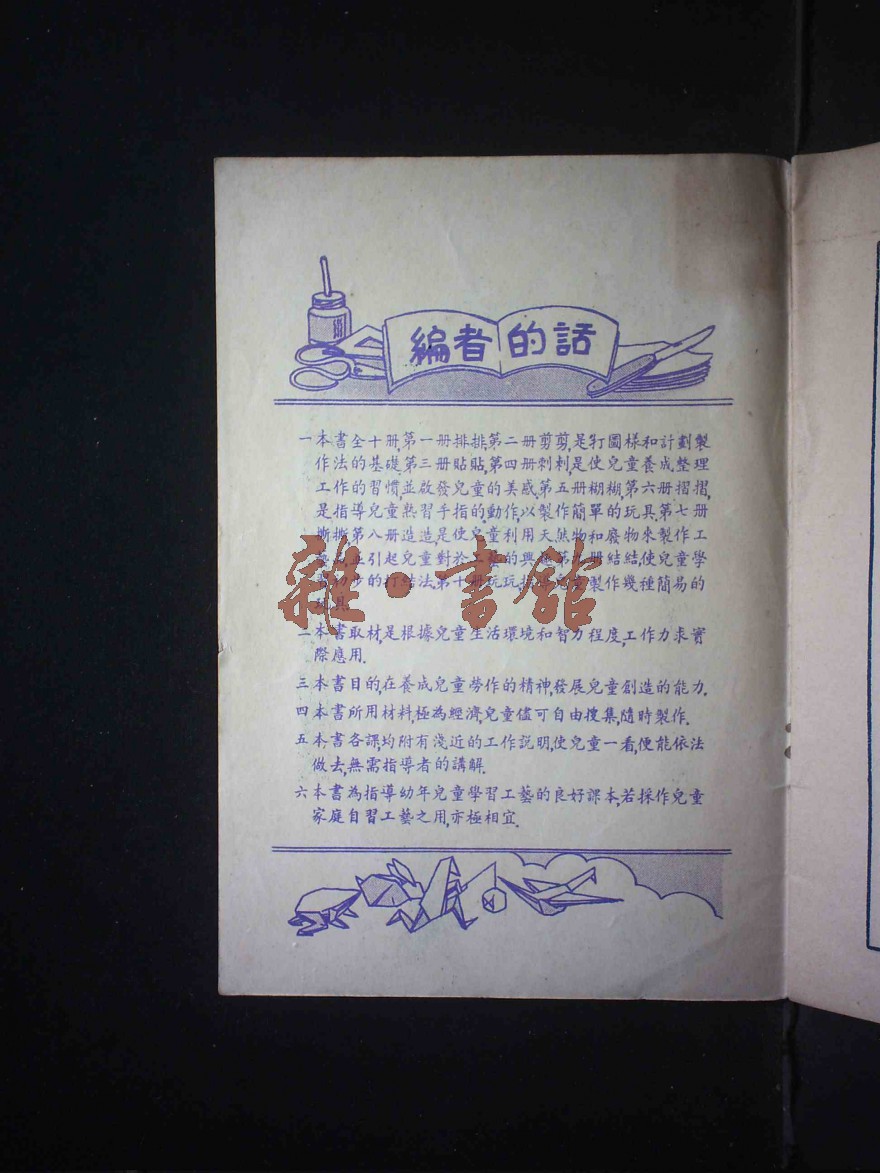 編者的話
一 本書全十册,第一册排排,第二册剪剪,是打圖樣和計劃製
作法的基礎.第三册貼貼,第四册刺刺,是使兒童養成整理
工作的習慣,並啟發兒童的美感.第五册糊糊,第六册摺摺,
是指導兒童熟習手指的動作,以製作簡單的玩具.第七册
撕撕,第八册造造,是使兒童利用天然物和廢物來製作工
並引起兒童對於工藝的興趣.第九册結結,使兒童學
初步的打結法.第十册玩玩,兒童製作幾種簡易的
玩具.
二 本書取材,是根據兒童生活環境和智力程度,工作力求實
際應用.
三 本書目的,在養成兒童勞作的精神發展兒童創造的能力.
四 本書所用材料,極為經濟,兒童儘可自由搜集,隨時製作.
五 本書各課,均附有淺近的工作説明,使兒童一看,便能依法
做去,無需指導者的講解.
六 本書為指導幼年兒童學習工藝的良好課本,若採作兒童
家庭自習工藝之用,亦極相宜.
雜·書館